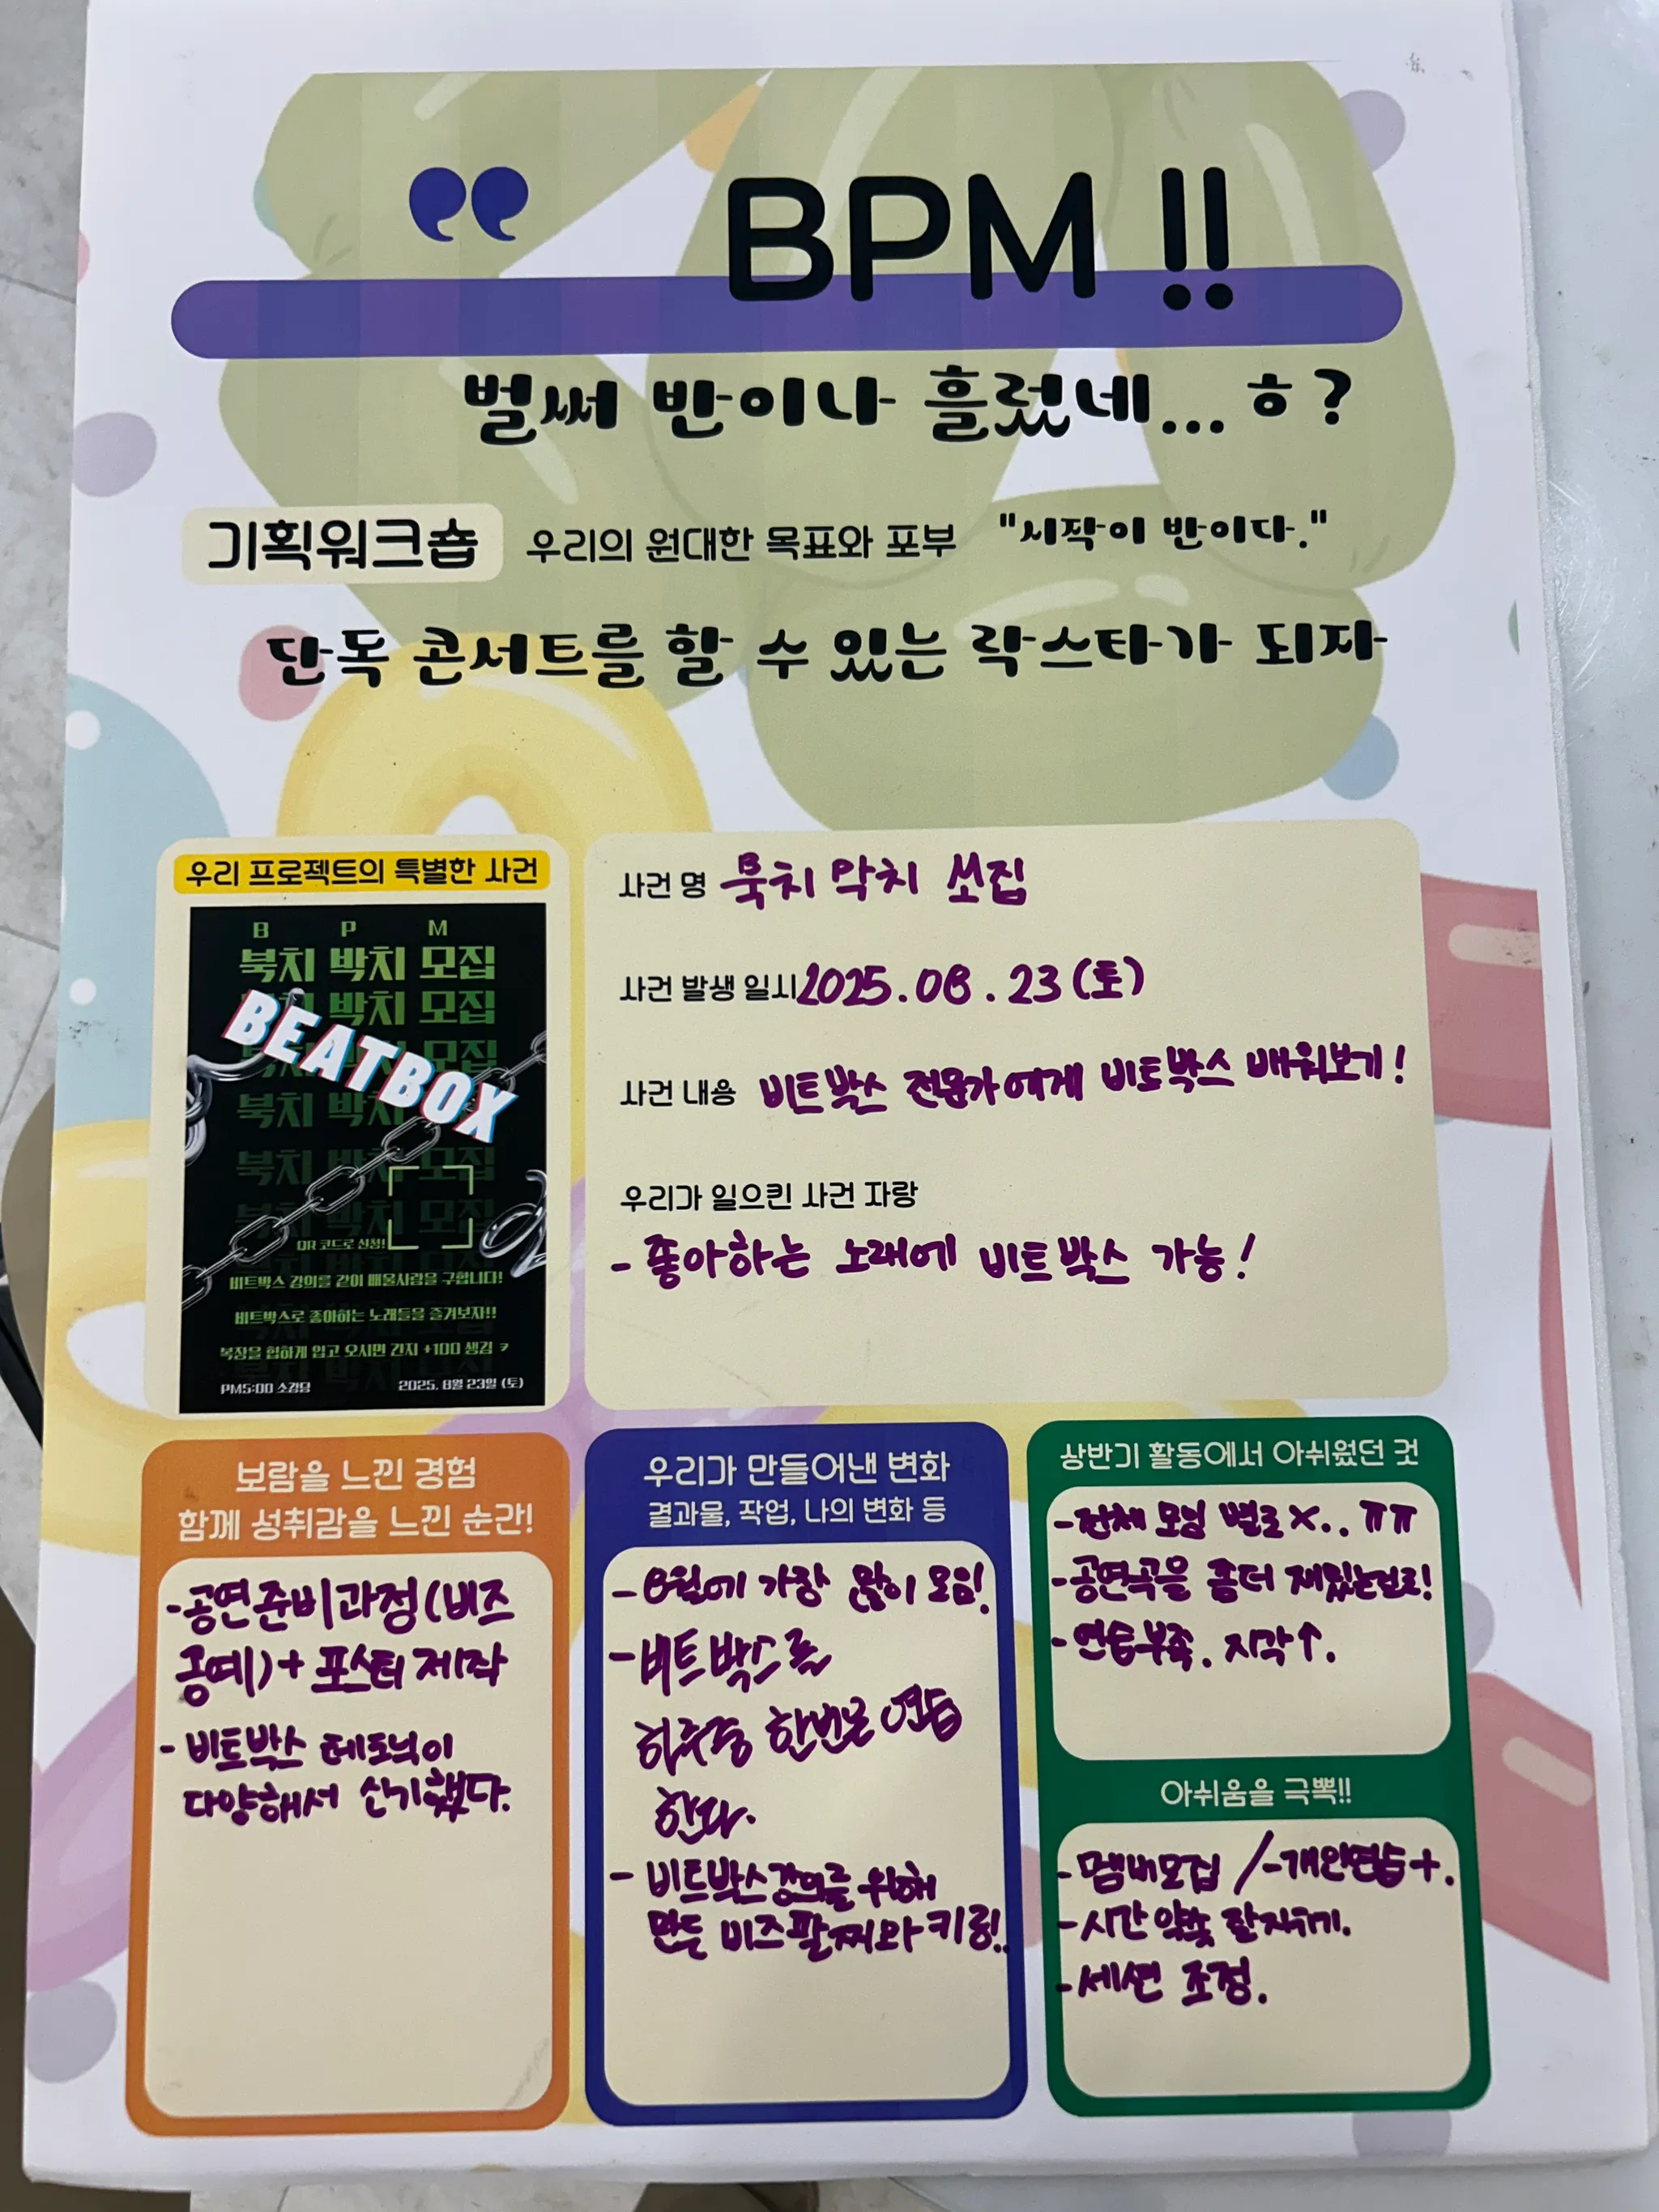 BPM !!
벌써 반이나 흘렀네...ㅎ?
기획워크숍 우리의 원대한 목표와 포부 "시작이 반이다."
단독 콘서트를 할 수 있는 락스타가 되자
우리 프로젝트의 특별한 사건
B P M
북치 박치 모집
박치 모집
모집
북치 박치
북치 박치 모집
북치 박치 모집
BEATBOX
QR 코드로 신청!
비트박스 강의를 같이 배울사람을 구합니다!
비트박스로 좋아하는 노래들을 즐겨보자!!
복장을 힙하게 입고 오시면 간지 +100 생김 ㅋ
PM5:00 소강당 2025. 8월 23일 (토)
사건 명 북치 박치 모집
사건 발생 일시 2025.08.23 (토)
사건 내용 비트박스 전문가에게 비트박스 배워보기!
우리가 일으킨 사건 자랑
- 좋아하는 노래에 비트박스 가능!
보람을 느낀 경험
함께 성취감을 느낀 순간!
-공연준비과정(비즈
공예)+ 포스터 제작
- 비트박스 테크닉이
다양해서 신기했다.
우리가 만들어낸 변화
결과물, 작업, 나의 변화 등
-8월에 가장 많이 모임!
-비트박스를
하루중 한번은 연습
한다.
- 비트박스강의를 위해
만든 비즈팔찌와 키링!
상반기 활동에서 아쉬웠던 것
-전체 모임 별로 X.. ㅠㅠ
-공연곡을 좀더 재밌는걸로!
- 연습부족. 지각↑.
아쉬움을 극뽁!!
-멤버모집 /-개인연습+.
-시간 약속 잘지키기.
-세션 조정.